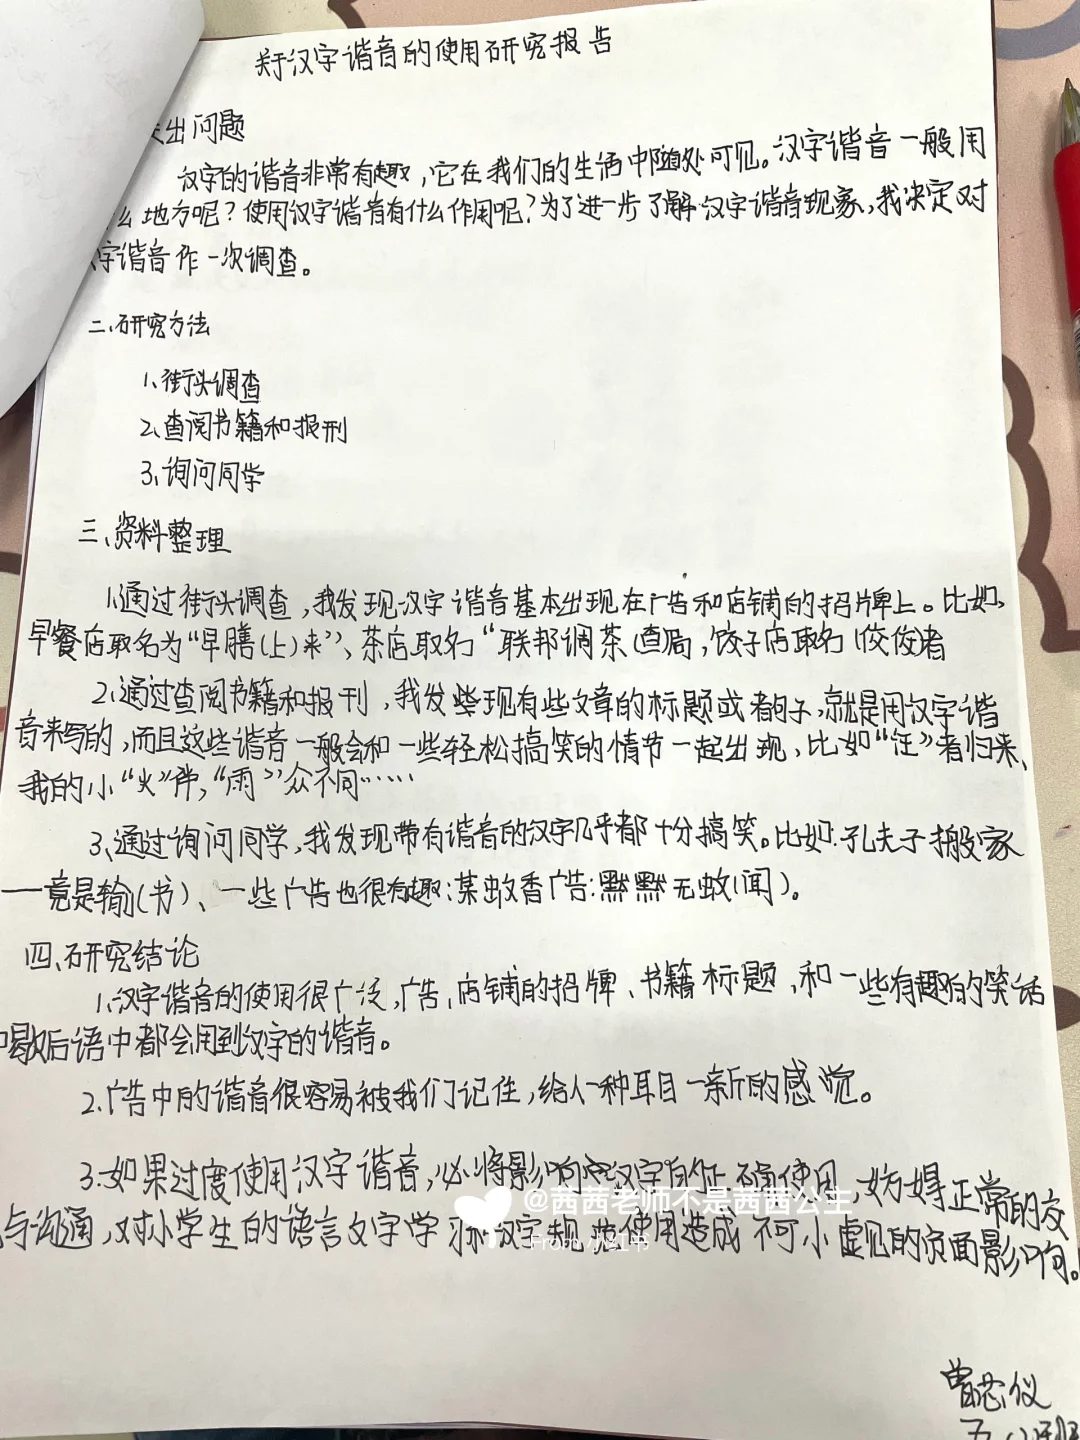 关于汉字谐音的使用研究报告
出问题
汉字的谐音非常有趣,它在我们的生活中随处可见。汉字谐音一般用
么地方呢?使用汉字谐音有什么作用呢?为了进一步了解汉字谐音现象,我决定对
字谐音作一次调查。
二、研究方法
1、街头调查
2、查阅书籍和报刊
3、询问同学
三、资料整理
1.通过街头调查,我发现汉字谐音基本出现在广告和店铺的招牌上。比如,
早餐店取名为“早膳(上)来”、茶店取名“联邦调茶(查)局,饺子店取名(佼佼)者
2、通过查阅书籍和报刊,我发些现有些文章的标题或者句子,就是用汉字谐
音来写的,而且这些谐音一般会和一些轻松搞笑的情节一起出现,比如“汪”者归来、
我的小“火”伴,“雨”众不同……
3、通过询问同学,我发现带有谐音的汉字几乎都十分搞笑。比如:孔夫子搬家
——竟是输(书)、一些广告也很有趣:某蚊香广告:默默无蚊(闻)。
四、研究结论
1、汉字谐音的使用很广泛,广告、店铺的招牌、书籍标题,和一些有趣的笑话
歇后语中都会用到汉字的谐音。
2.广告中的谐音很容易被我们记住,给人一种耳目一新的感觉。
3.如果过度使用汉字谐音,必将影响汉字的正确使用,妨碍正常的交
与沟通,对小学生的语言文字学习和汉字规范使用造成不可小虚见的负面影响。
@茜茜老师不是茜茜公主
From 小红书
曾芯仪